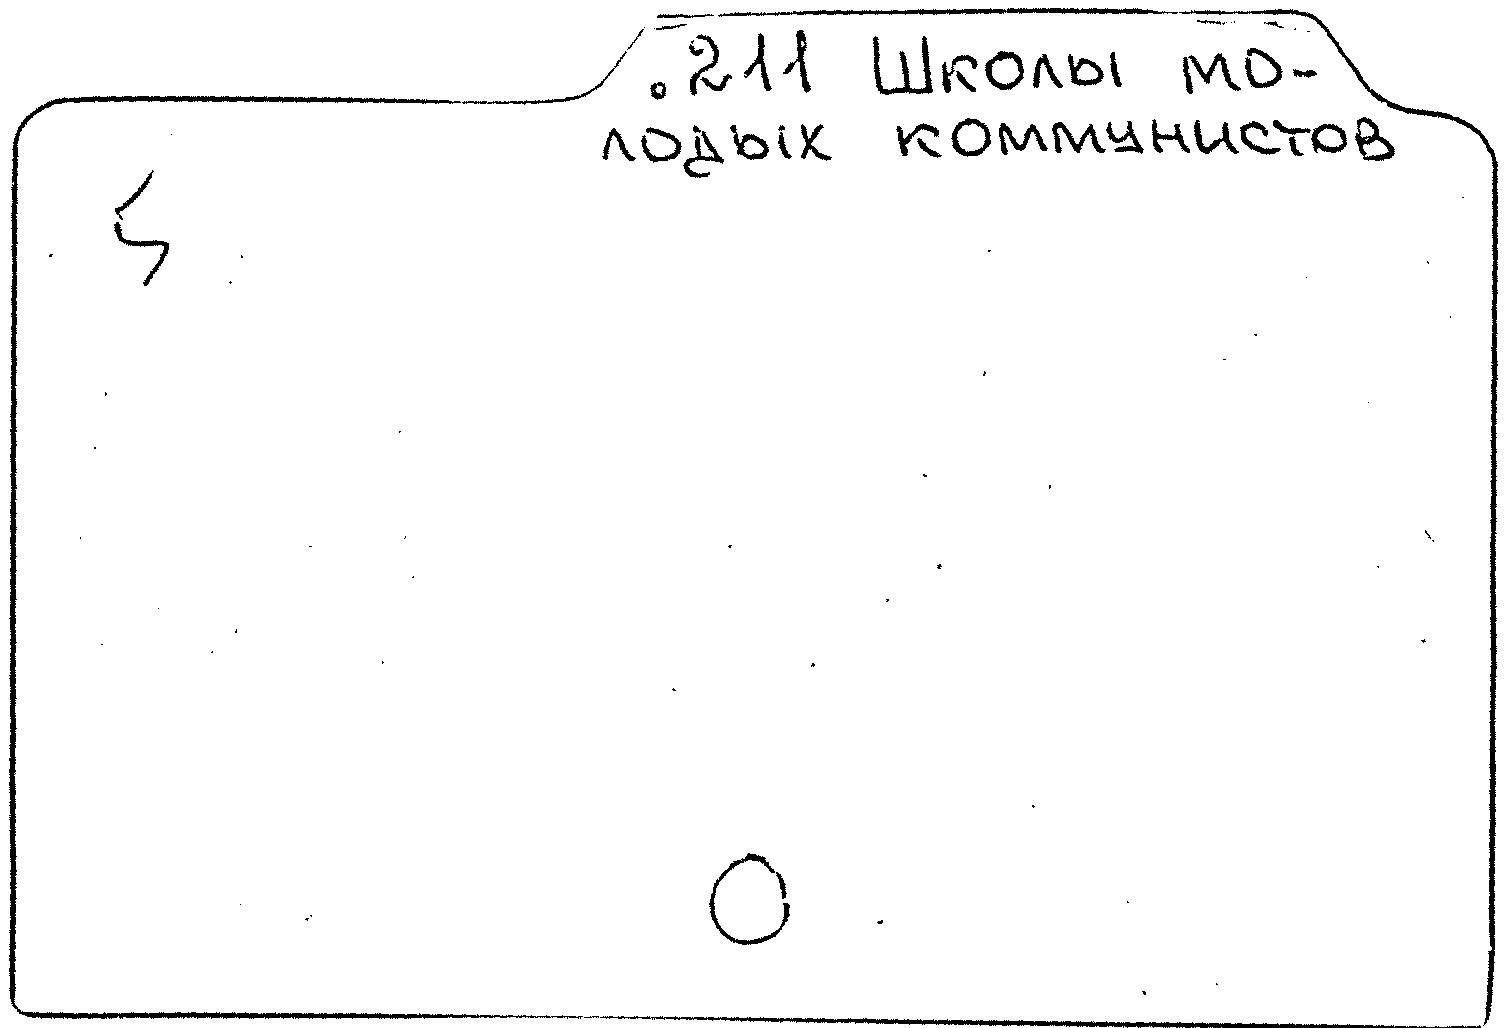 .211 Школы мо-
лодых коммунистов